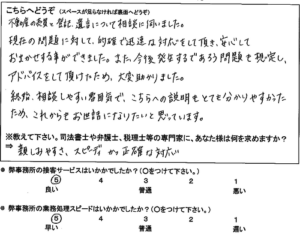 こちらへどうぞ（スペースが足りなければ裏面へどうぞ）
不動産の売買と登記、遺言について相談に伺いました。
現在の問題に対して、的確で迅速な対応をして頂き、安心して
おまかせする事ができました。また今後発生するであろう問題も想定し、
アドバイスをして頂けたため、大変助かりました。
終始、相談しやすい雰囲気で、こちらへの説明もとても分かりやすかった
ため、これからもお世話になりたいと思っています。
※教えて下さい。司法書士や弁護士、税理士等の専門家に、あなた様は何を求めますか？
⇒ 親しみやすさ、スピーディかつ正確な対応
● 弊事務所の接客サービスはいかがでしたか？（○をつけて下さい。）
5 4 3 2 1
良い 普通 悪い
● 弊事務所の業務処理スピードはいかがでしたか？（○をつけて下さい。）
5 4 3 2 1
早い 普通 遅い